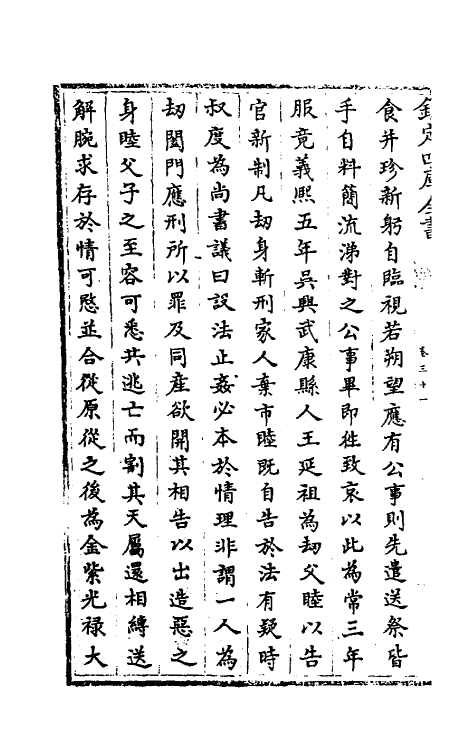 欽定四庫全書
卷三十一
食并珍新躬自臨視若朔望應有公事則先遣送祭皆
手自料簡流涕對之公事畢即徃致哀以此為常三年
服竟義熙五年吳興武康縣人王延祖為刼父睦以告
官新制凡刼身斬刑家人棄市睦既自告於法有疑時
叔度為尚書議曰設法止姦必本於情理非謂一人為
刼闔門應刑所以罪及同産欲開其相告以出造惡之
身睦父子之至容可悉共逃亡而割其天屬還相縛送
解腕求存於情可愍並合從原從之後為金紫光禄大